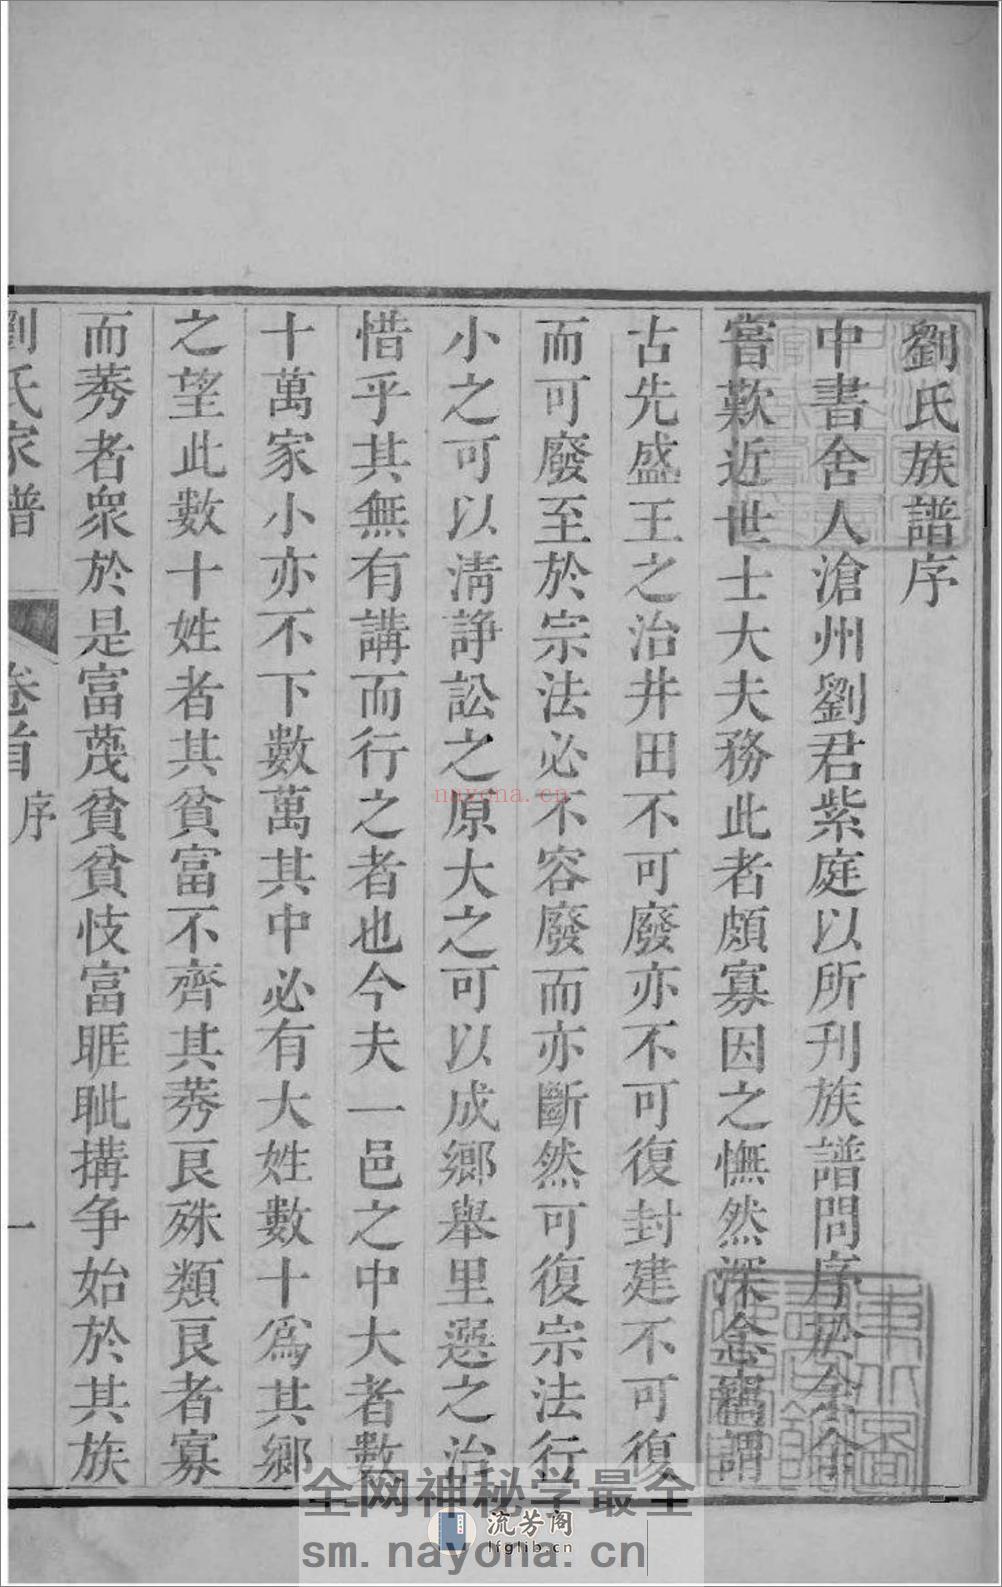 劉氏族譜序
中書舍人滄州劉君紫庭以所刊族譜問序於余余
嘗歎近世士大夫務此者頗寡因之憮然深念竊謂
古先盛王之治井田不可廢亦不可復封建不可復
而可廢至於宗法必不容廢而亦斷然可復宗法行
小之可以淸諍訟之原大之可以成鄉舉里選之治
惜乎其無有講而行之者也今夫一邑之中大者數
十萬家小亦不下數萬其中必有大姓數十爲其鄉
之望此數十姓者其貧富不齊其莠良殊類良者寡
而莠者衆於是富蔑貧貧忮富睚眦搆争始於其族
劉氏家譜
卷首
序
一
nayona.cn
全网神秘学最全
流芳阁
lfglib.cn
sm.nayona.cn